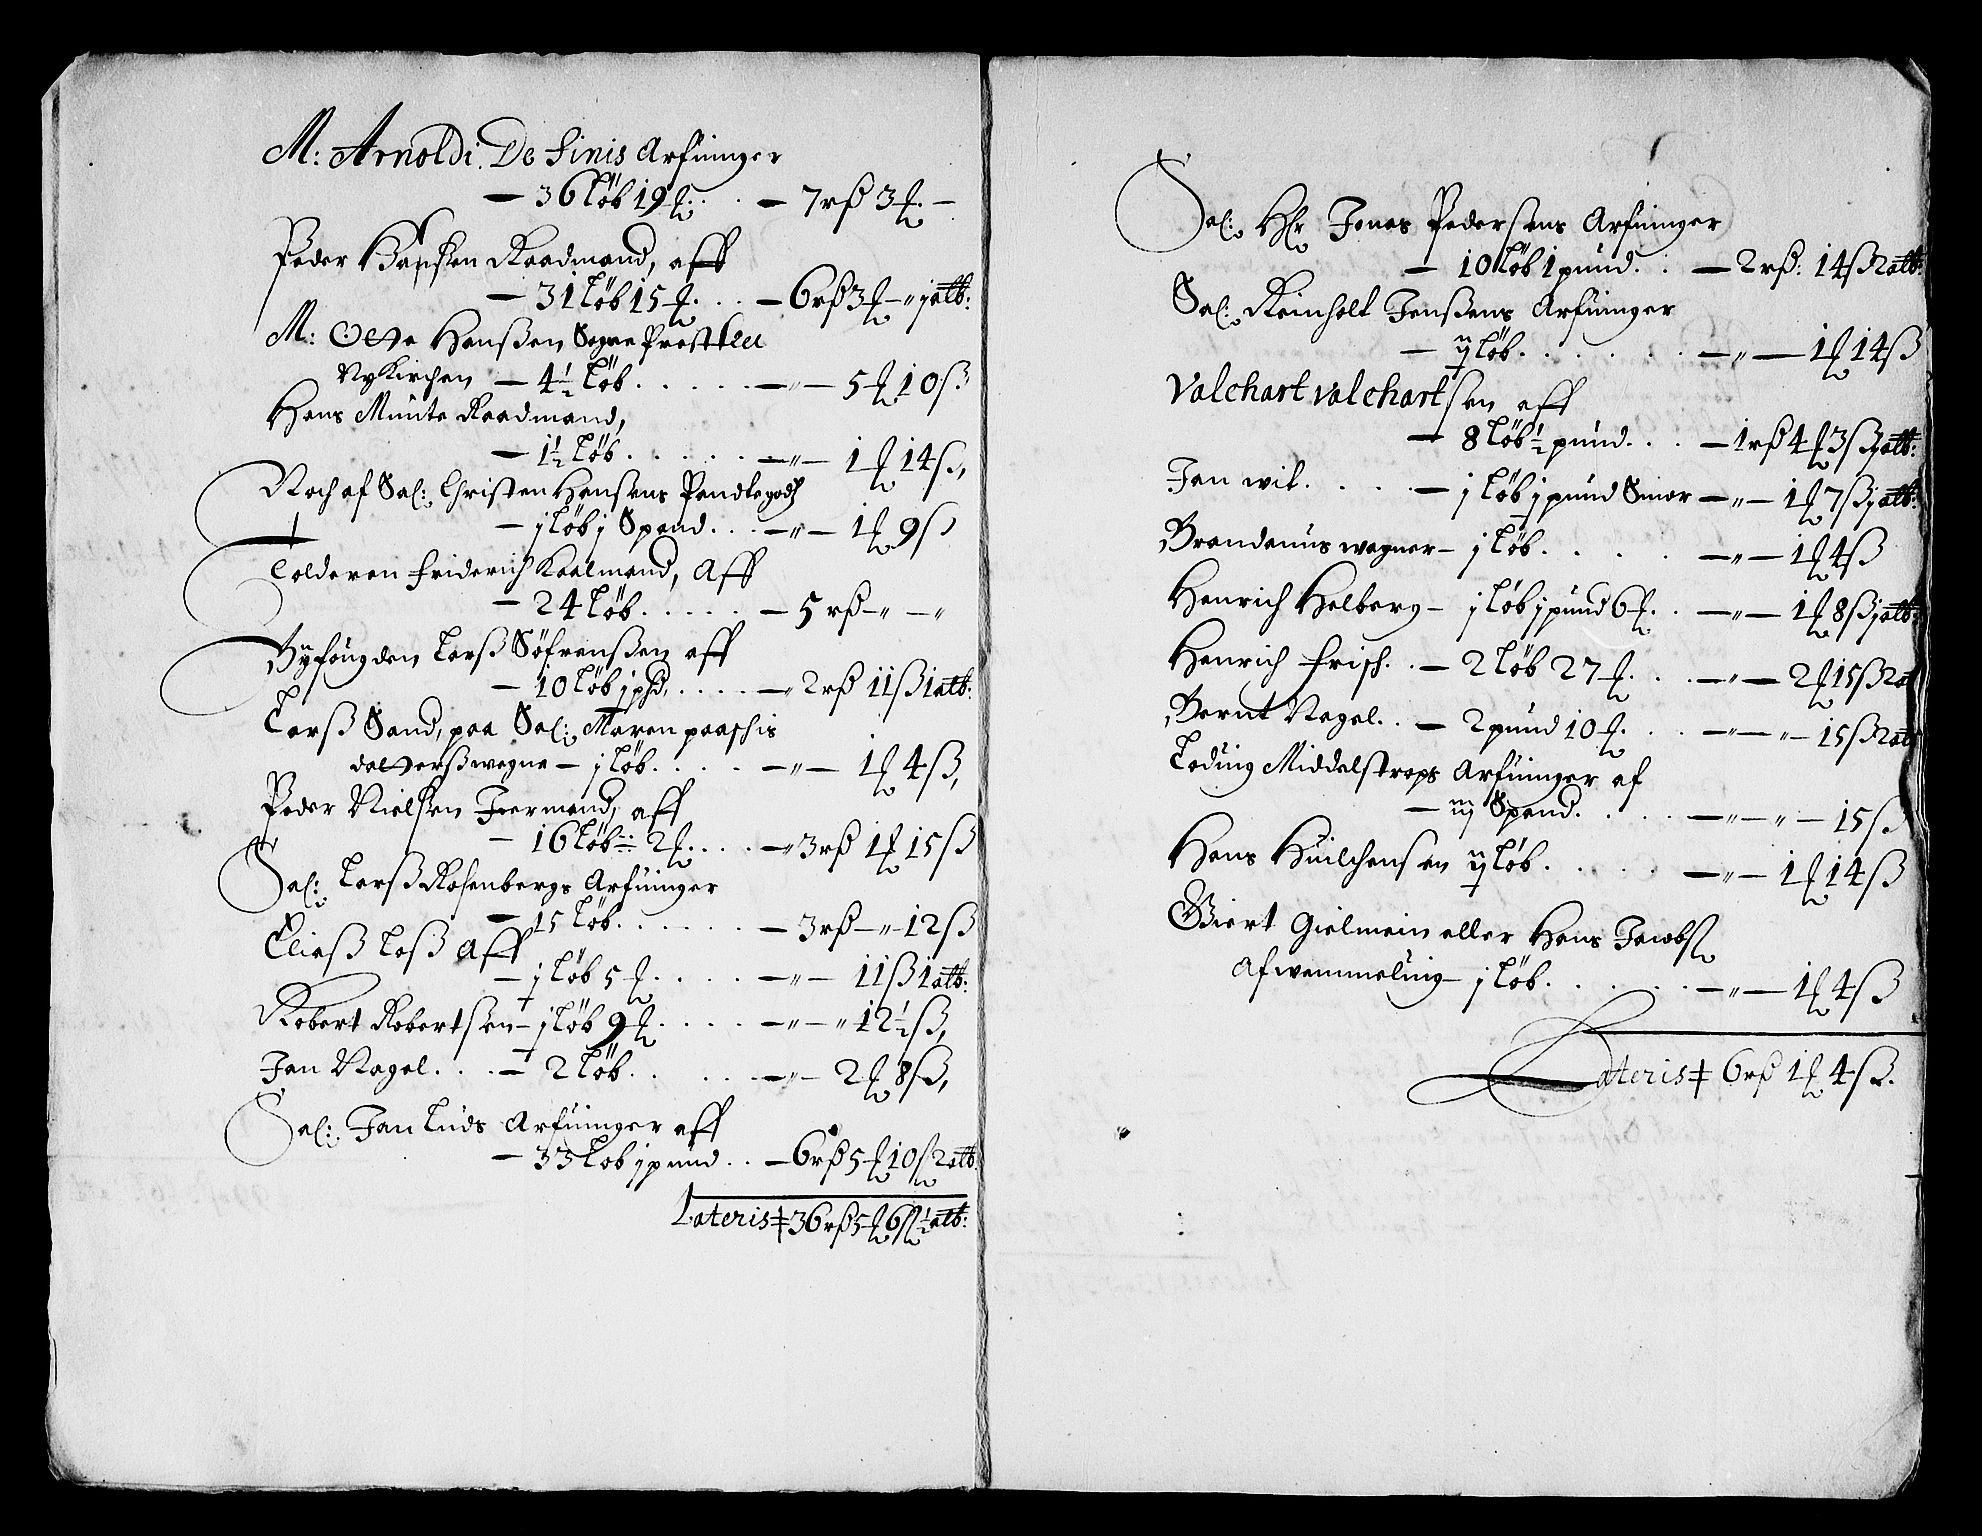 M: Arnoldi De Finis Arfuinger
— 36 löb 19 ℔ . . — 7 rß 3 ℔ —
Peder Hanssen Raadmand, aff
— 31 löb 15 ℔ . . . — 6 rß 3 ℔ — " j alb:
M: Otte Hanßen Sogne Prest til
Nykirchen — 4½ löb . . . . . — " — 5 ℔ 10 ß
Hans Munte Raadmand,
— 1½ löb . . . . . — " — 1 ℔ 14 ß,
Noch af Sal: Christen Hansens Pandtegods
— j löb j Spand . . . — " — 1 ℔ 9 ß
Tolderen Friderich Kaalmand, Aff
— 24 löb . . . . . — 5 rß — " — "
Byfougden Larß Söfrenßen aff
— 10 löb j pd, . . . . — " 2 rß 11 ß 1 alb:
Larß Sand, paa Sal: Maren paaschis
datterß wegne — j löb . . . . — " — 1 ℔ 4 ß,
Peder Nielssen Jermand, aff
— 16 löb 2 ℔ . . . . — " 3 rß 1 ℔ 15 ß
Sal: Larß Rosenbergs Arfuinger
— 15 löb . . . . . . — 3 rß — " — 12 ß
Eliaß Loß Aff
— j löb 5 ℔ . . . . — " — 11 ß 1 alb:
Robert Robertsen — j löb 9 ℔ . . . . — " — " 12½ ß,
Jan Nagel . . . — 2 löb . . . . . — " — 2 ℔ 8 ß,
Sal: Jan Luds Arfuinger aff
— 33 löb j pund . . — 6 rß 5 ℔ 10 ß 2 alb:
Lateris ǂ 36 rß 5 ℔ 6 ß ½ alb:
Sal: Hr Jonas Pedersens Arfuinger
— 10 löb 1 pund . . — 2 rß: 14 ß 2 alb:
Sal: Reinholt Jenßens Arfuinger
— ij löb . . . . . . — " — 1 ℔ 14 ß
Valchart valchartsen aff
— 8 löb ½ pund . . . — 1 rß 4 ℔ 3 ß j alb:
Jan wil . . . . — j löb j pund Smør — " — 1 ℔ 7 ß j alb:
Brandanus wagner — j löb . . . . . — " — 1 ℔ 4 ß
Henrich Helberg — j löb j pund 6 ℔ . . — " — 1 ℔ 8 ß j alb:
Henrich Frisch . . — 2 löb 27 ℔ . . . — " — 2 ℔ 15 ß 2 al
Bernt Nagel . . — 2 pund 10 ℔ . . . — " — " — 15 ß 2 alb
Loduig Middelstrops Arfuinger af
— iij Spand . . . . . — " — " — 15 ß
Hans Huilchensen ij löb . . . . . — " — 1 ℔ 14 ß
Giert Gielmein eller Hans Jacobs
Afwemmeluing — j löb . . . . . . — " — 1 ℔ 4 ß
Lateris ǂ 6 rß 1 ℔ 4 ß.